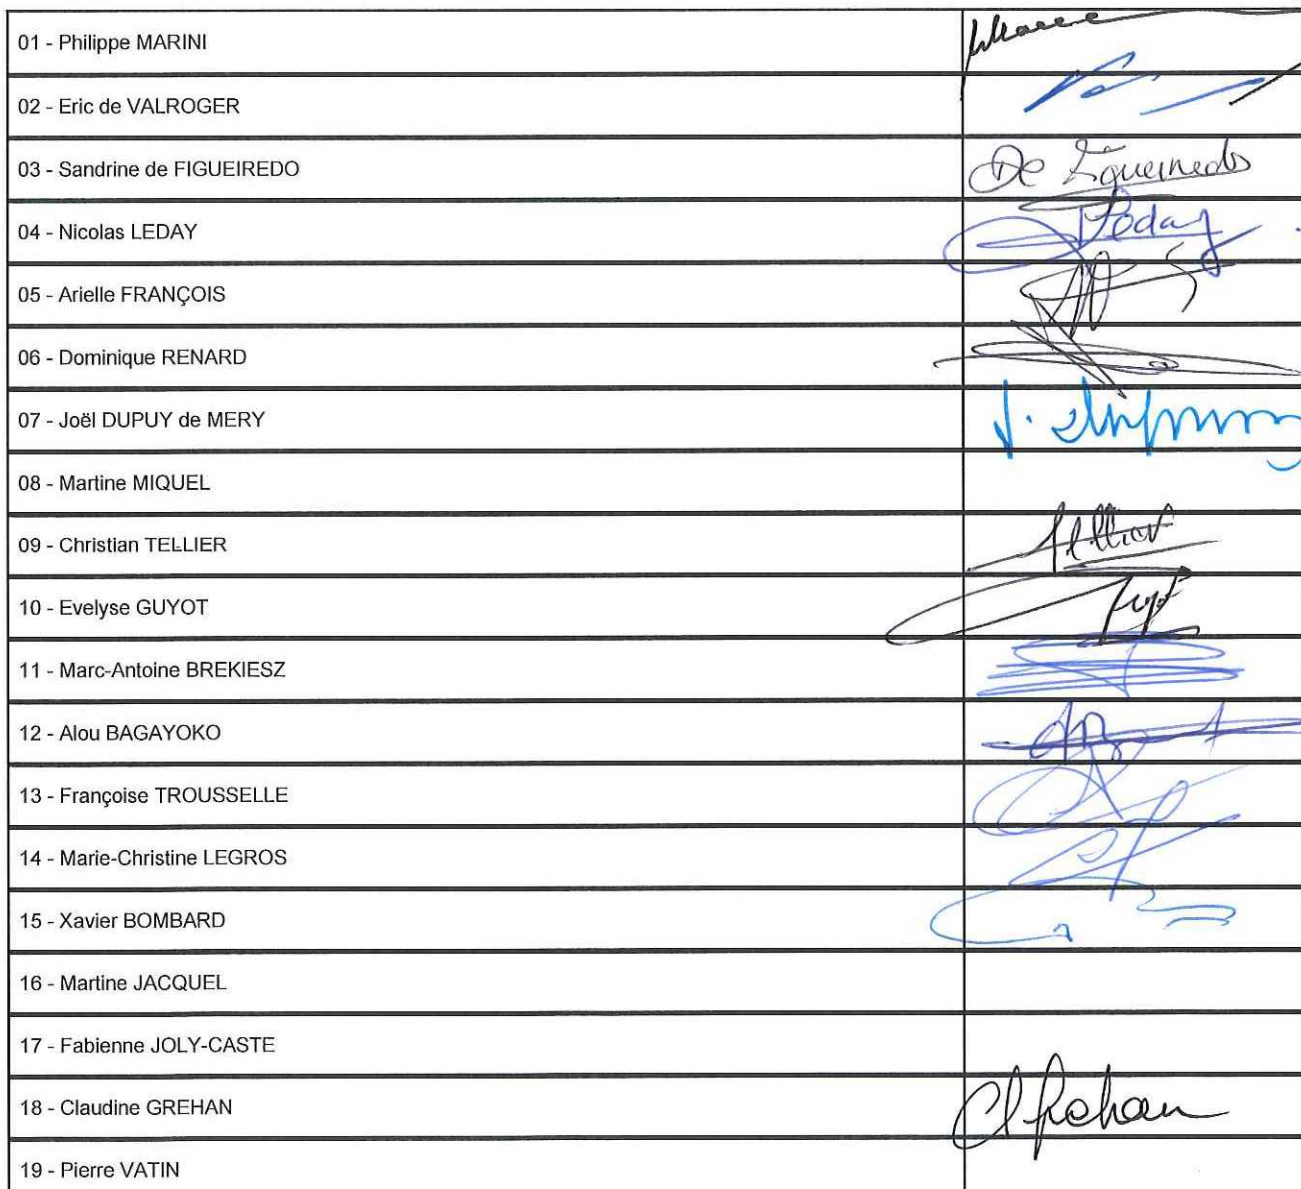 01 - Philippe MARINI
02 - Eric de VALROGER
03 - Sandrine de FIGUEIREDO
De Figueiredo
04 - Nicolas LEDAY
Leday
05 - Arielle FRANÇOIS
06 - Dominique RENARD
07 - Joël DUPUY de MERY
08 - Martine MIQUEL
09 - Christian TELLIER
Tellier
10 - Evelyse GUYOT
11 - Marc-Antoine BREKIESZ
12 - Alou BAGAYOKO
13 - Françoise TROUSSELLE
14 - Marie-Christine LEGROS
15 - Xavier BOMBARD
16 - Martine JACQUEL
17 - Fabienne JOLY-CASTE
18 - Claudine GREHAN
Cl Grehan
19 - Pierre VATIN